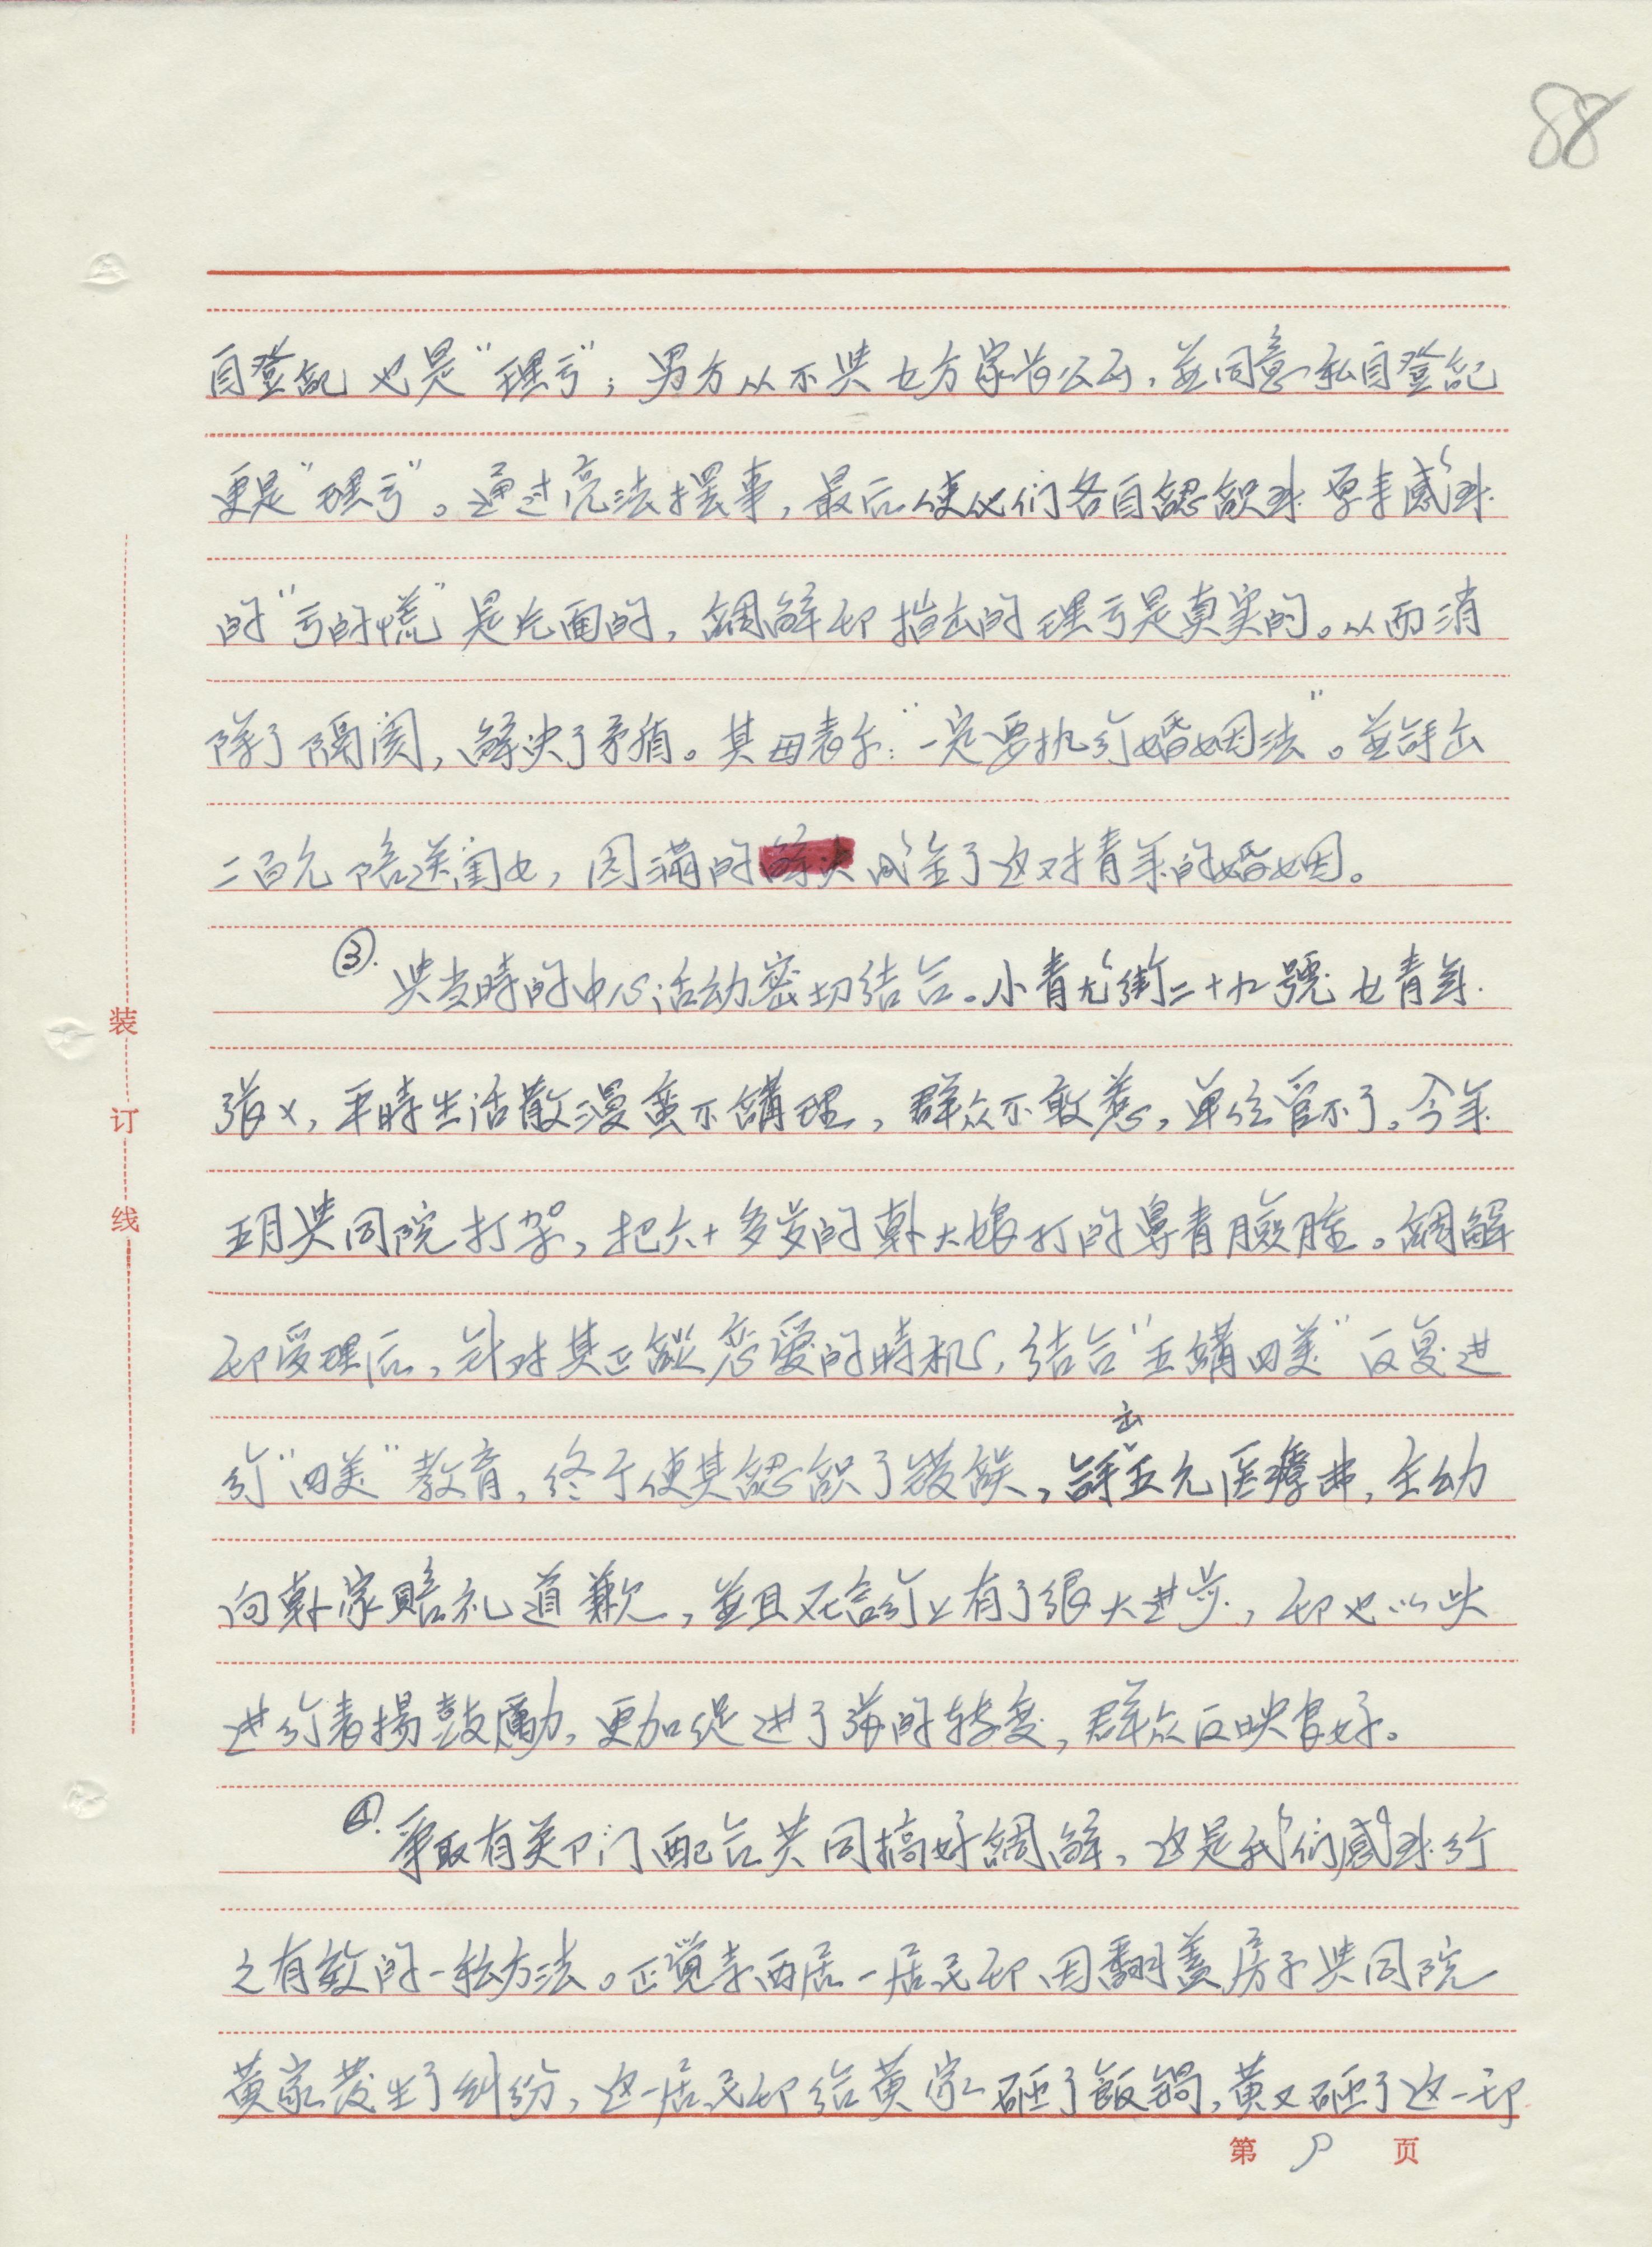 88
自登記也是“理亏”；男方从不與女方家为公函，並同意私自登記
更是“理亏”。通过亮法摆事，最后使他们各自認識到原来感到
的“亏的慌”是片面的，調解卬指出的理亏是真实的。从而消
除了隔阂，解决了矛盾。其母表示：“一定要执行婚姻法”。並許出
二百元陪送闺女，园满的解决成全了这对青年的婚姻。
③.與当時的中心活动密切结合。小青龙街二十九號女青年
張×，平時生活散漫蛮不講理，群众不敢惹，单位管不了。今年
五月與同院打架，把六十多岁的韩大娘打的鼻青臉肿。調解
卬受理后，针对其正談恋爱的時机，结合“五講四美”反复进
行“四美”教育，终于使其認識了錯誤，許出五元医療费，主动
向韩家賠礼道歉，並且在言行上有了很大进步，卬也以此
进行表揚鼓勵，更加促进了張的转变，群众反映良好。
④.爭取有关卩门配合共同搞好調解，这是我们感到行
之有效的一种方法。正覺寺西居一居民卬因翻盖房子與同院
黄家发生了纠纷，这一居民卬给黄家砸了飯鍋，黄又砸了这一卬
装
订
线
第 页